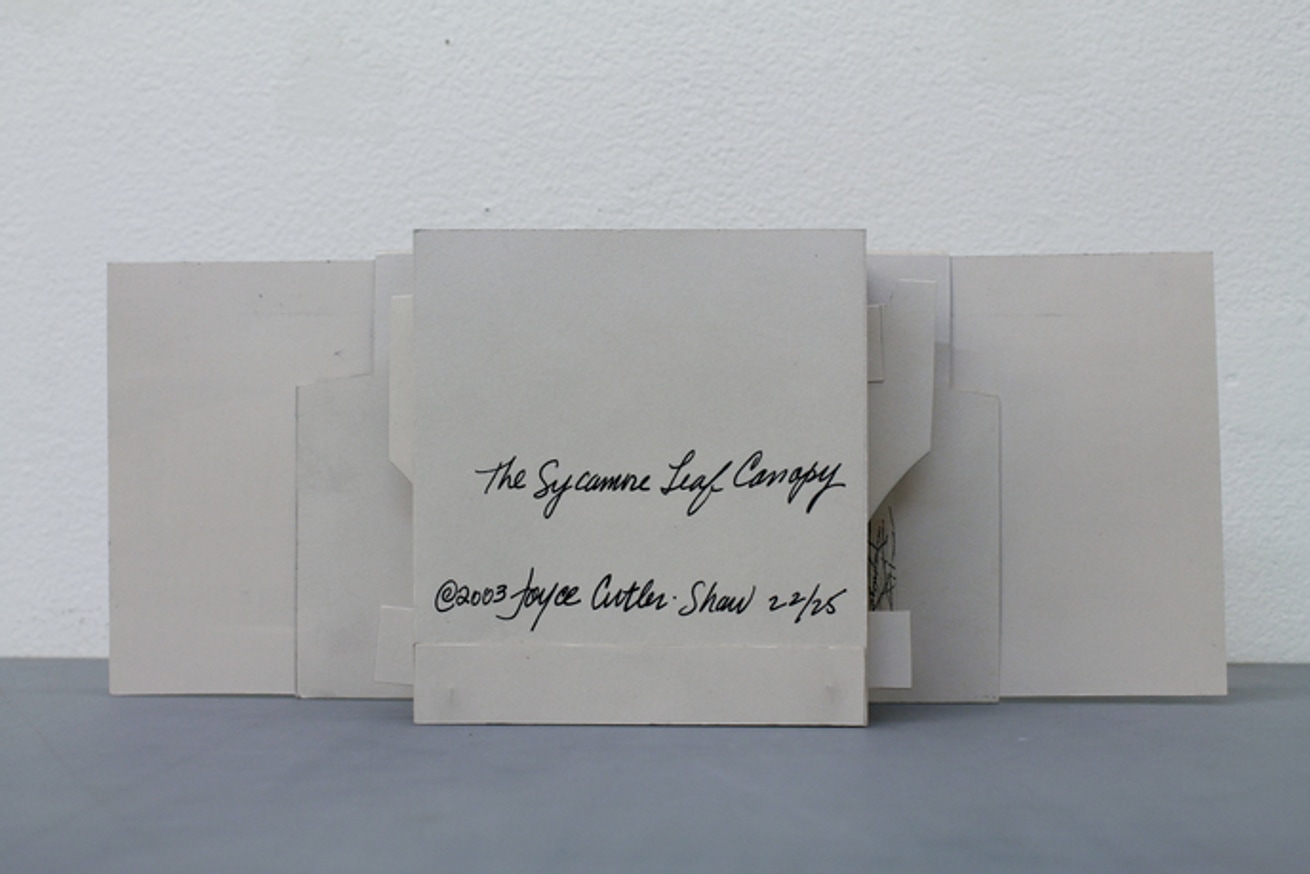 The Sycamore Leaf Canopy
©2003 Joyce Cutler-Shaw 22/25